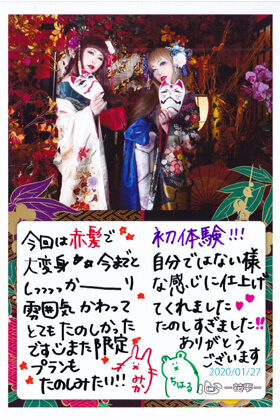 今回は赤髪で
大変身 今まど
しっっっかーーり
雰囲気 かわって
とても たのしかった
ですじまた限定
プランも
たのしみたい!!
みか
初体験!!!
自分ではない様
な感じに仕上げ
てくれました♥♥
たのしすぎました!!
ありがとう
ございます
ちはる
2020/01/27